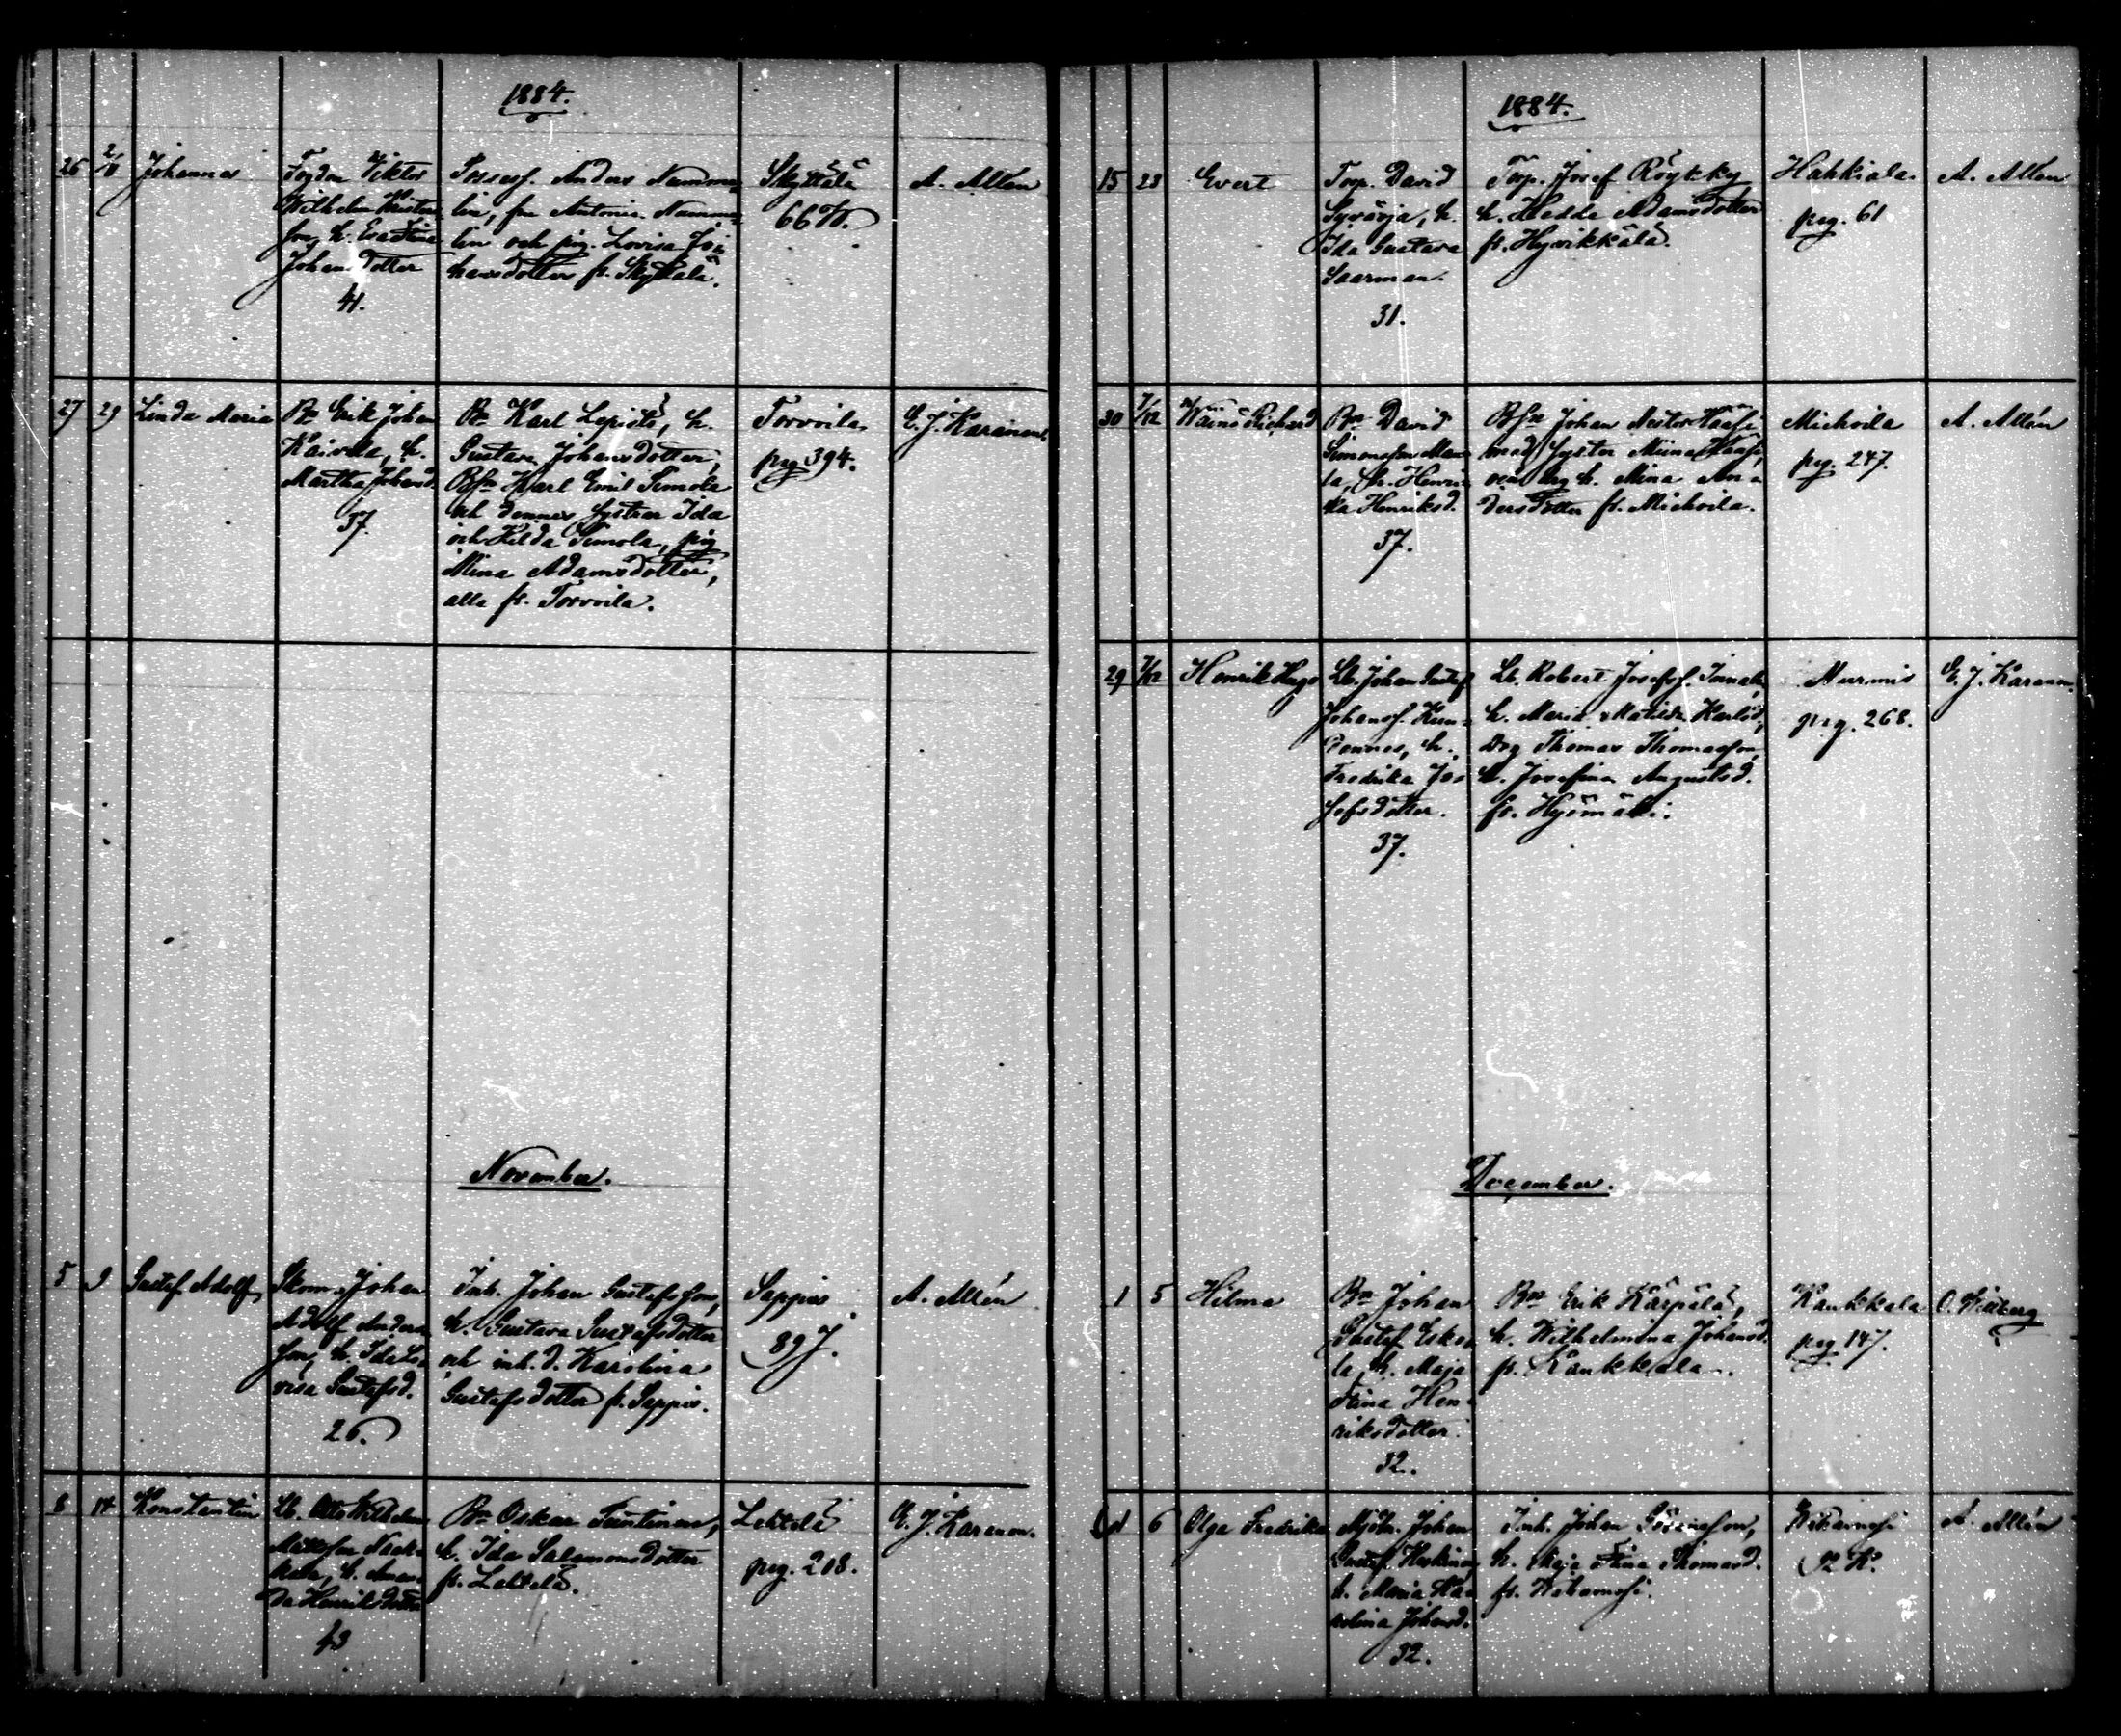 1884.
26 2/11 Johannes
Fogden Viktor
Wilhelm Kustaa
son, h. Eva Stina
Johansdotter
41.
Possess. Anders Numme
lin, fru Antonia Numme
lin och pig. Lovisa Jo
hansdotter fr. Skyttälä.
Skyttälä
66
A. Allén
27 29 Linda Maria
Bn Erik Johan
Kaivola, h.
Martha Johansd.
37.
Bn Karl Lepistö, h.
Gustava Johansdotter,
Bsn Karl Emil Simola
och dennes systrar Ida
och Hilda Simola, pig
Mina Adamsdotter,
alla fr. Torvoila.
Torvoila
pag 394.
E. J. Karanen.
November.
5 9 Gustaf Adolf
Skom. Johan
Adolf Anders
son, h. Ida Lo
visa Gustafsd.
26.
Inh. Johan Gustafsson,
h. Gustava Gustafsdotter
och inh. d. Karolina
Gustafsdotter fr. Sappis.
Sappis
897.
A. Allén
8 14 Konstantin
Lb. Otto Wilhelm
Mattsson
h. Aman
da Henriksdotter
43
Bn Oskar
h. Ida Salomonsdotter
fr. Lehtelä.
Lehtelä
pag. 218.
E. J. Karanen.
1884.
15 23 Evert
Torp. David
Syvöoja, h.
Ida Gustava
Saarman.
31.
Torp. Josef Röykky
h. Hedda Adamsdotter
fr. Hyvikkälä.
Hahkiala.
pag. 61
A. Allén
30 7/12 Wäinö Richard
Bn David
Simonsson Man
la, h. Henri
ka Henriksd.
37.
Bsn Johan Nestor
med syster Miina
h. Mina An-
dersdotter fr. Miehoila.
Miehoila
pag. 247.
A. Allén
29 7/12 Henrik Hugo
Lb. Johan Gustaf
Johanss.
h.
Fredrika Jo
sefsdotter.
37.
Lb. Robert Josefss.
h. Maria Matilda Karlsd,
drg Thomas Thomasson,
h. Josefina Augustsd.
fr. Hyömäki.
Nurmis
pag. 268.
E. J. Karanen.
December.
1 5 Hilma
Bn Johan
Gustaf Esko
la, h. Maja
Stina Hen
riksdotter.
32.
Bn Erik Kärpälä,
h. Wilhelmina Johansd.
fr. Kankkala.
Kankkala
pag 147.
6 Olga Fredrika
Mjöln. Johan
Gustaf
h. Maria Ka
rolina Johansd.
32.
Inh. Johan
h. Maja Stina Thomasd.
fr.
A. Allén